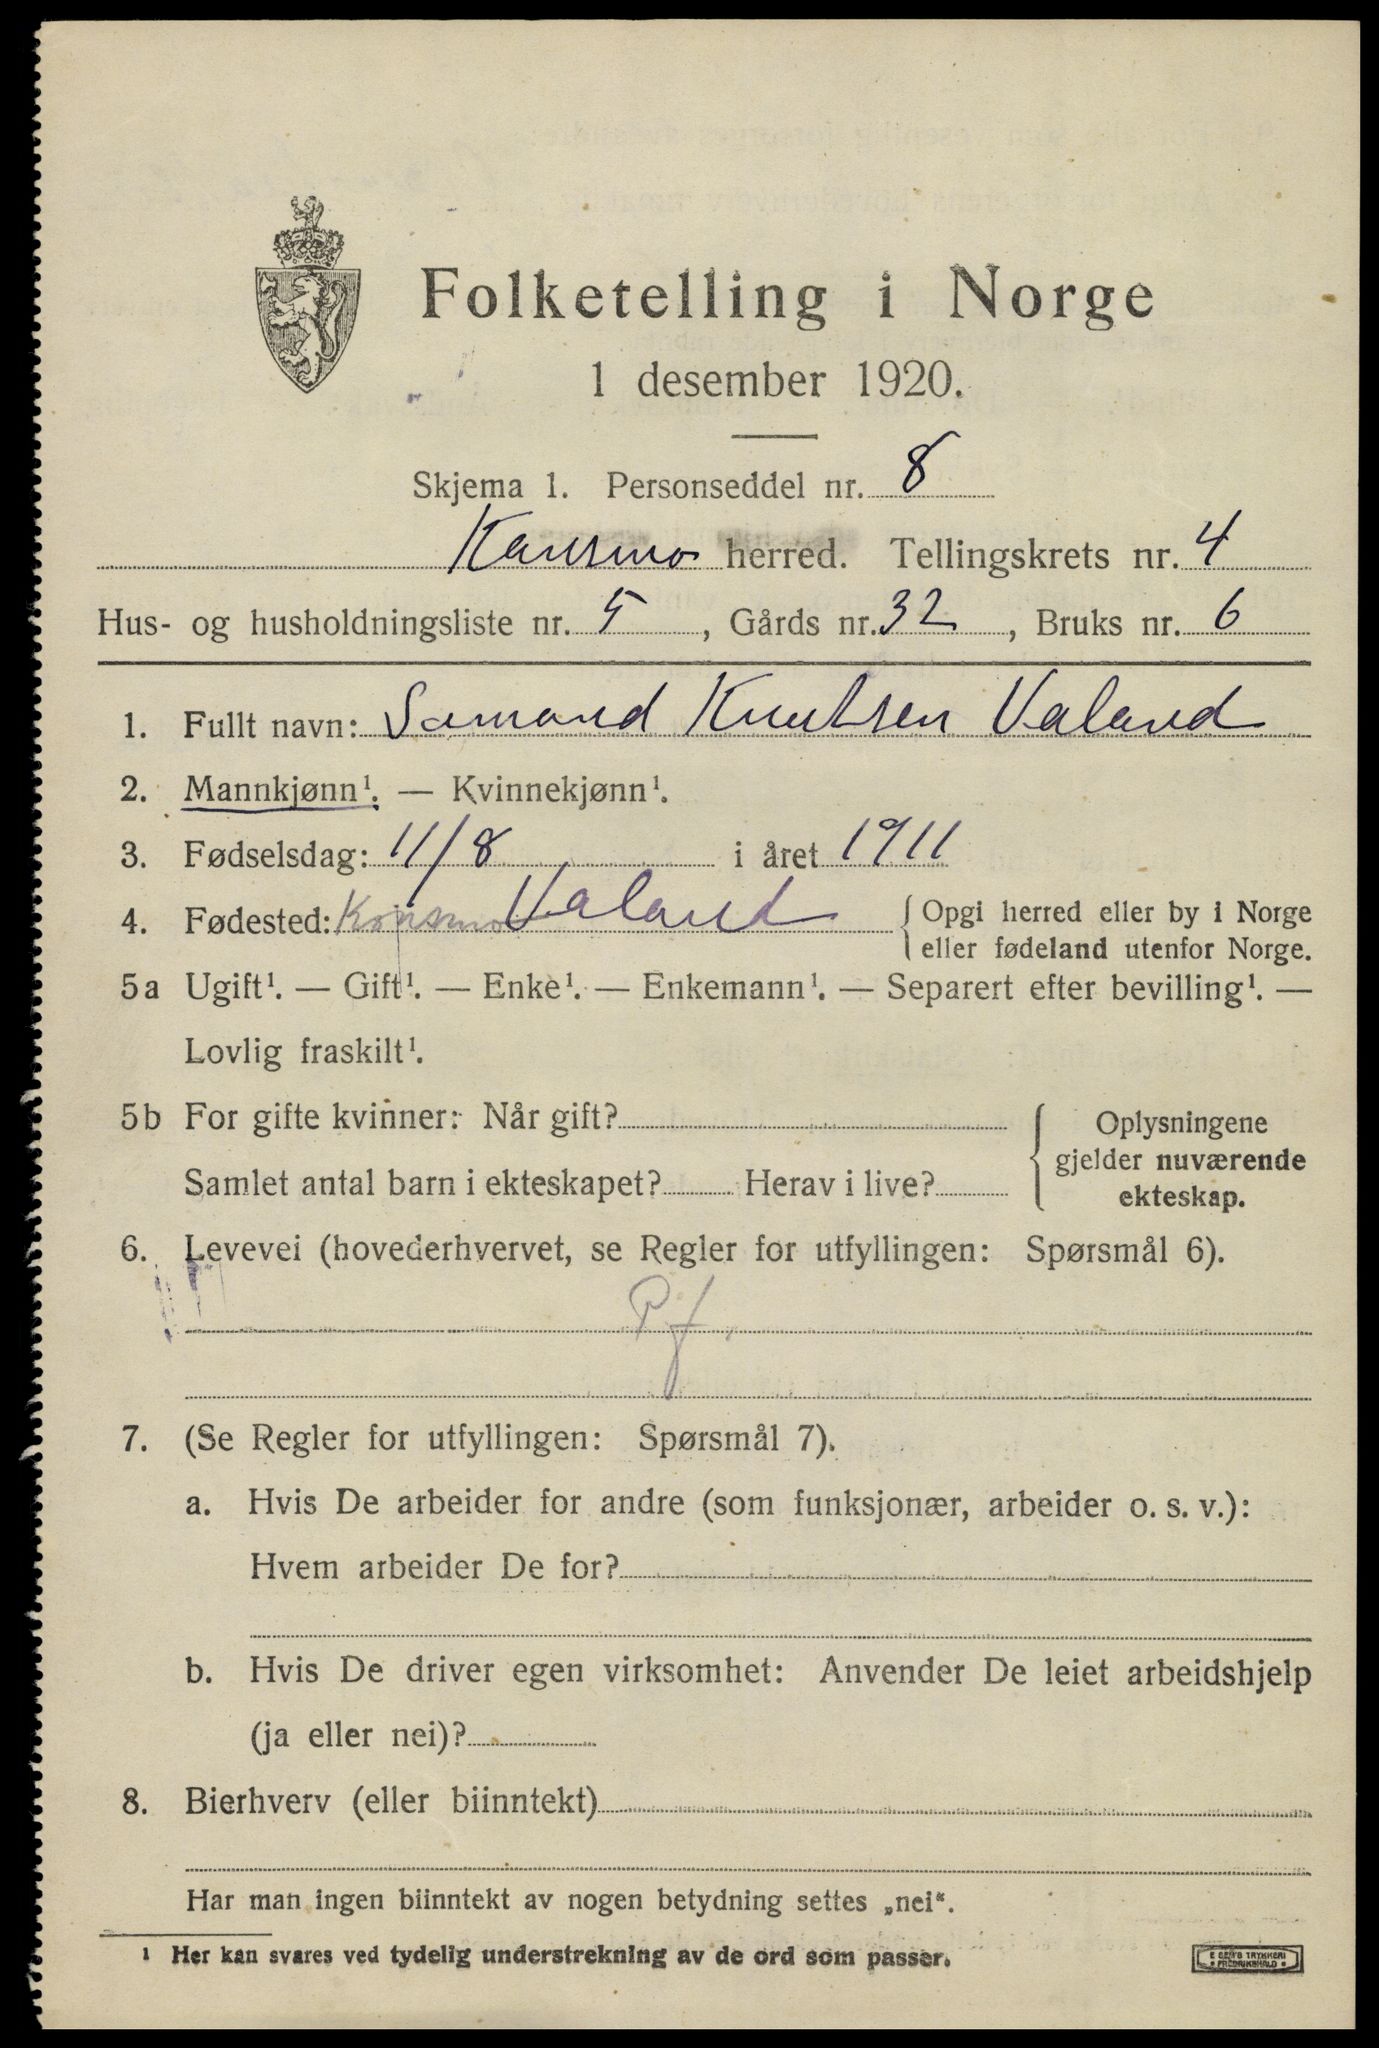 Folketelling i Norge
1 desember 1920.
Skjema 1. Personseddel nr. 8
Konsmo herred. Tellingskrets nr. 4
Hus- og husholdningsliste nr. 5, Gårds nr. 32, Bruks nr. 6
1. Fullt navn: Samand Knutsen Valand
2. Mannkjønn¹. — Kvinnekjønn¹.
3. Fødselsdag: 11/8 i året 1911
4. Fødested: Konsmo Valand { Opgi herred eller by i Norge
eller fødeland utenfor Norge.
5a Ugift¹. — Gift¹. — Enke¹. — Enkemann¹. — Separert efter bevilling¹. —
Lovlig fraskilt¹.
5b For gifte kvinner: Når gift?
Samlet antal barn i ekteskapet? Herav i live?
{ Oplysningene
gjelder nuværende
ekteskap.
6. Levevei (hovederhvervet, se Regler for utfyllingen: Spørsmål 6).
Pf.
7. (Se Regler for utfyllingen: Spørsmål 7).
a. Hvis De arbeider for andre (som funksjonær, arbeider o. s. v.):
Hvem arbeider De for?
b. Hvis De driver egen virksomhet: Anvender De leiet arbeidshjelp
(ja eller nei)?
8. Bierhverv (eller biinntekt)
Har man ingen biinntekt av nogen betydning settes „nei“.
¹ Her kan svares ved tydelig understrekning av de ord som passer.